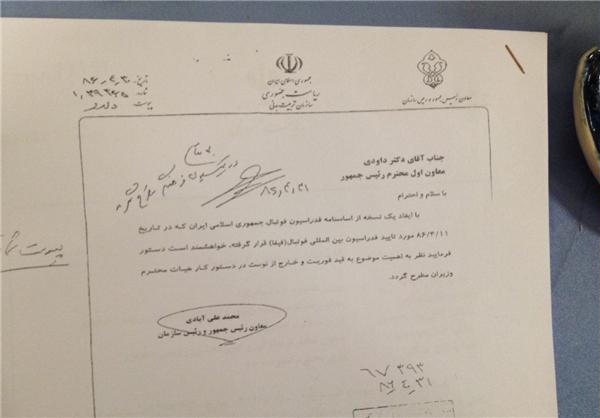 جمهوری اسلامی ایران
ریاست جمهوری
سازمان تربیت بدنی
معاون رئیس جمهور و رئیس سازمان
تاریخ: ۸۶،۴،۳۰
شماره: ۱،۳۹۲۶۵
پیوست: دارد
جناب آقای دکتر داودی
معاون اول محترم رئیس جمهور
با سلام و احترام
با ایفاد یک نسخه از اساسنامه فدراسیون فوتبال جمهوری اسلامی ایران که در تاریخ
۸۶/۴/۱۱ مورد تایید فدراسیون بین المللی فوتبال(فیفا) قرار گرفته، خواهشمند است دستور
فرمایید نظر به اهمیت موضوع به قید فوریت و خارج از نوبت در دستور کار هیات محترم
وزیران مطرح گردد.
محمد علی آبادی
معاون رئیس جمهور و رئیس سازمان
۸۶،۴،۳۱
پیوست
۶۷۳۹۳
۸۶،۴،۳۱